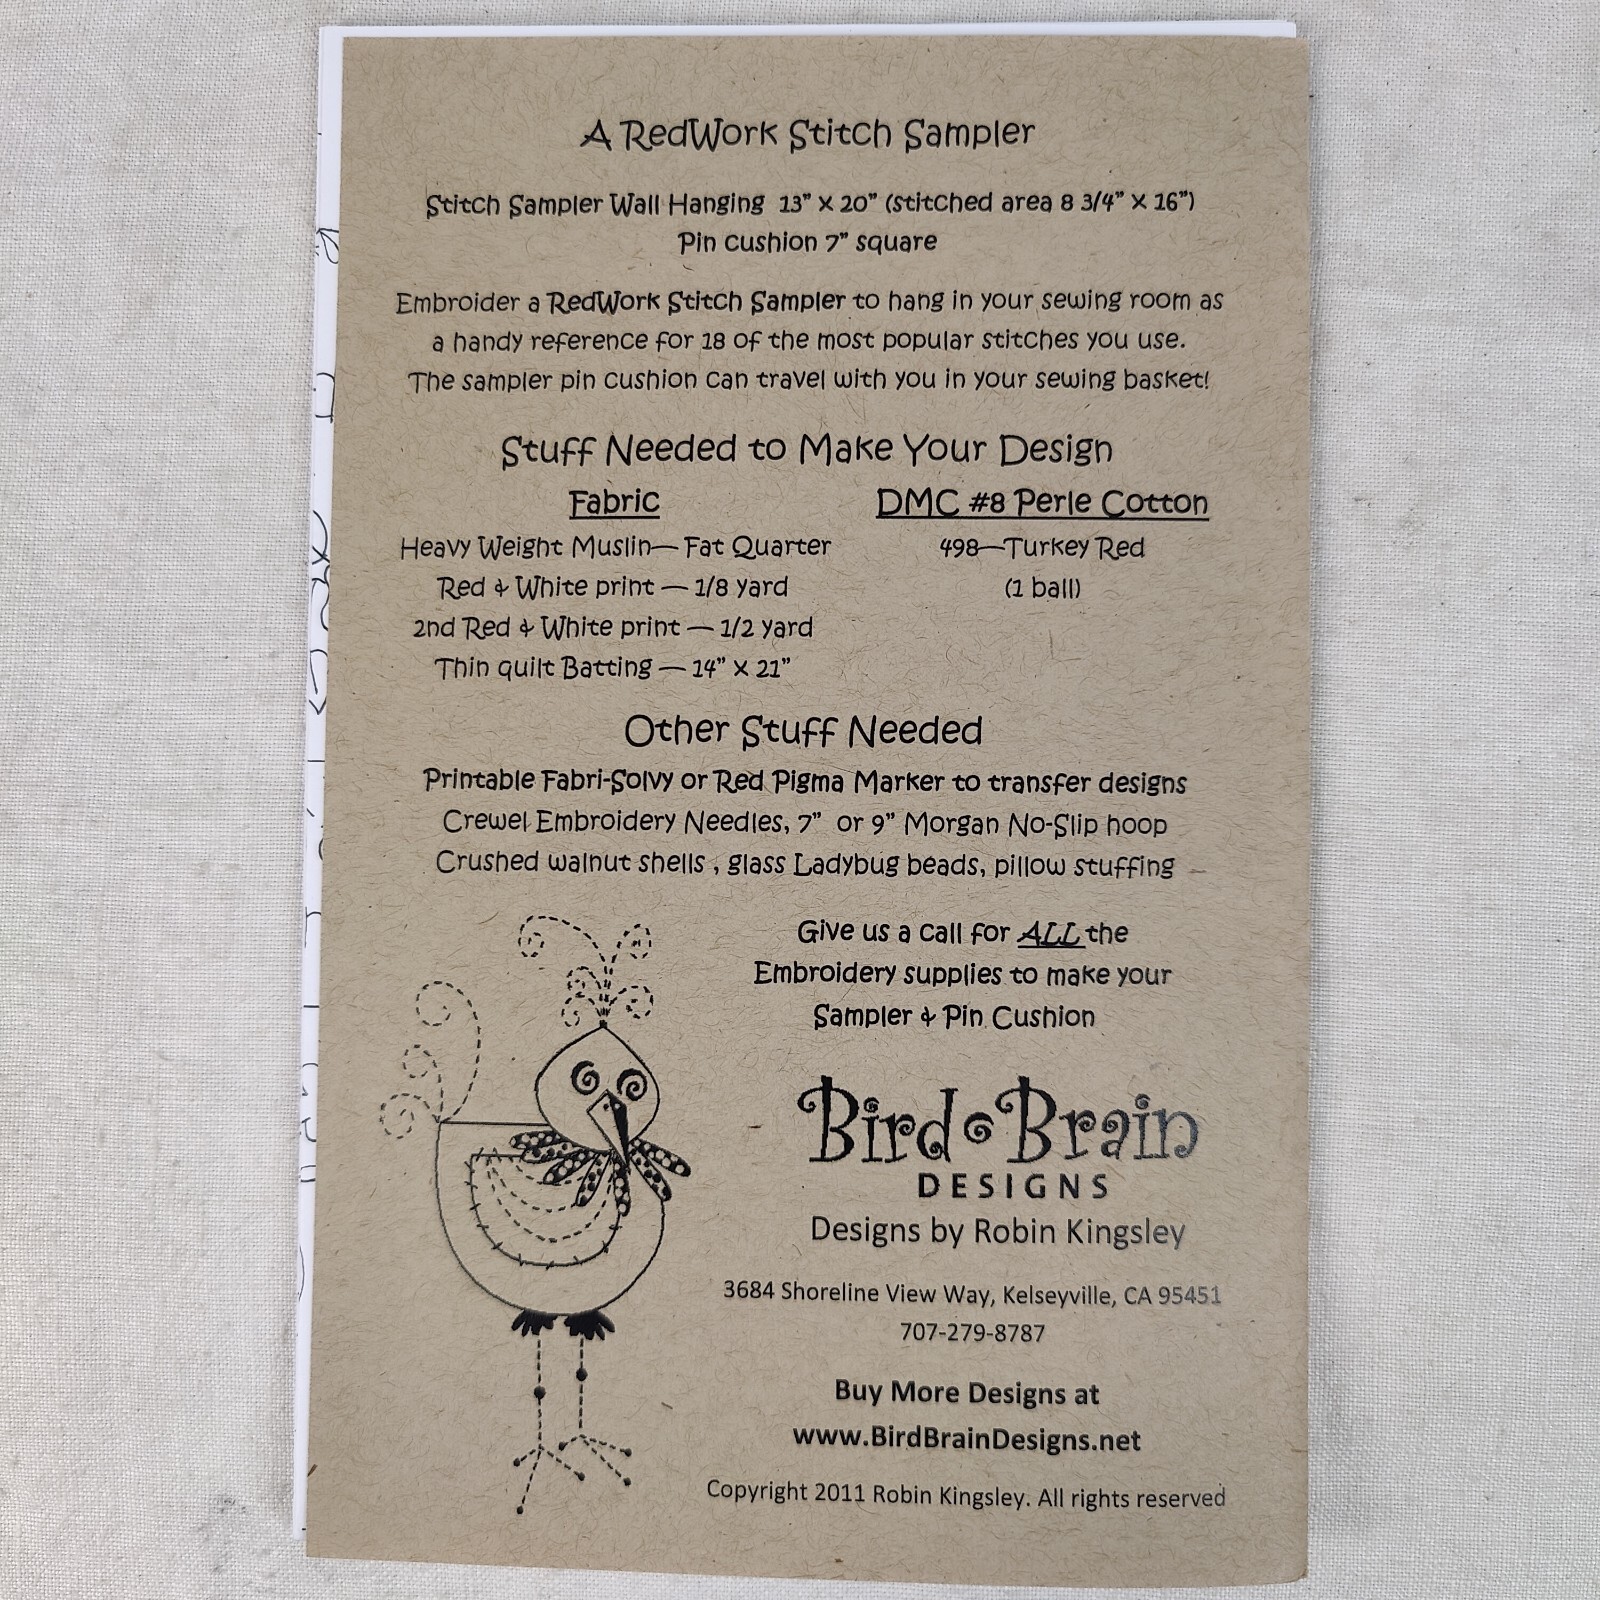 A RedWork Stitch Sampler
Stitch Sampler Wall Hanging 13” x 20” (stitched area 8 3/4” x 16”)
Pin cushion 7” square
Embroider a RedWork Stitch Sampler to hang in your sewing room as
a handy reference for 18 of the most popular stitches you use.
The sampler pin cushion can travel with you in your sewing basket!
Stuff Needed to Make Your Design
Fabric
Heavy Weight Muslin— Fat Quarter
Red & White print — 1/8 yard
2nd Red & White print — 1/2 yard
Thin quilt Batting — 14” x 21”
DMC #8 Perle Cotton
498—Turkey Red
(1 ball)
Other Stuff Needed
Printable Fabri-Solvy or Red Pigma Marker to transfer designs
Crewel Embroidery Needles, 7” or 9” Morgan No-Slip hoop
Crushed walnut shells , glass Ladybug beads, pillow stuffing
Give us a call for ALL the
Embroidery supplies to make your
Sampler & Pin Cushion
Bird Brain
DESIGNS
Designs by Robin Kingsley
3684 Shoreline View Way, Kelseyville, CA 95451
707-279-8787
Buy More Designs at
www.BirdBrainDesigns.net
Copyright 2011 Robin Kingsley. All rights reserved